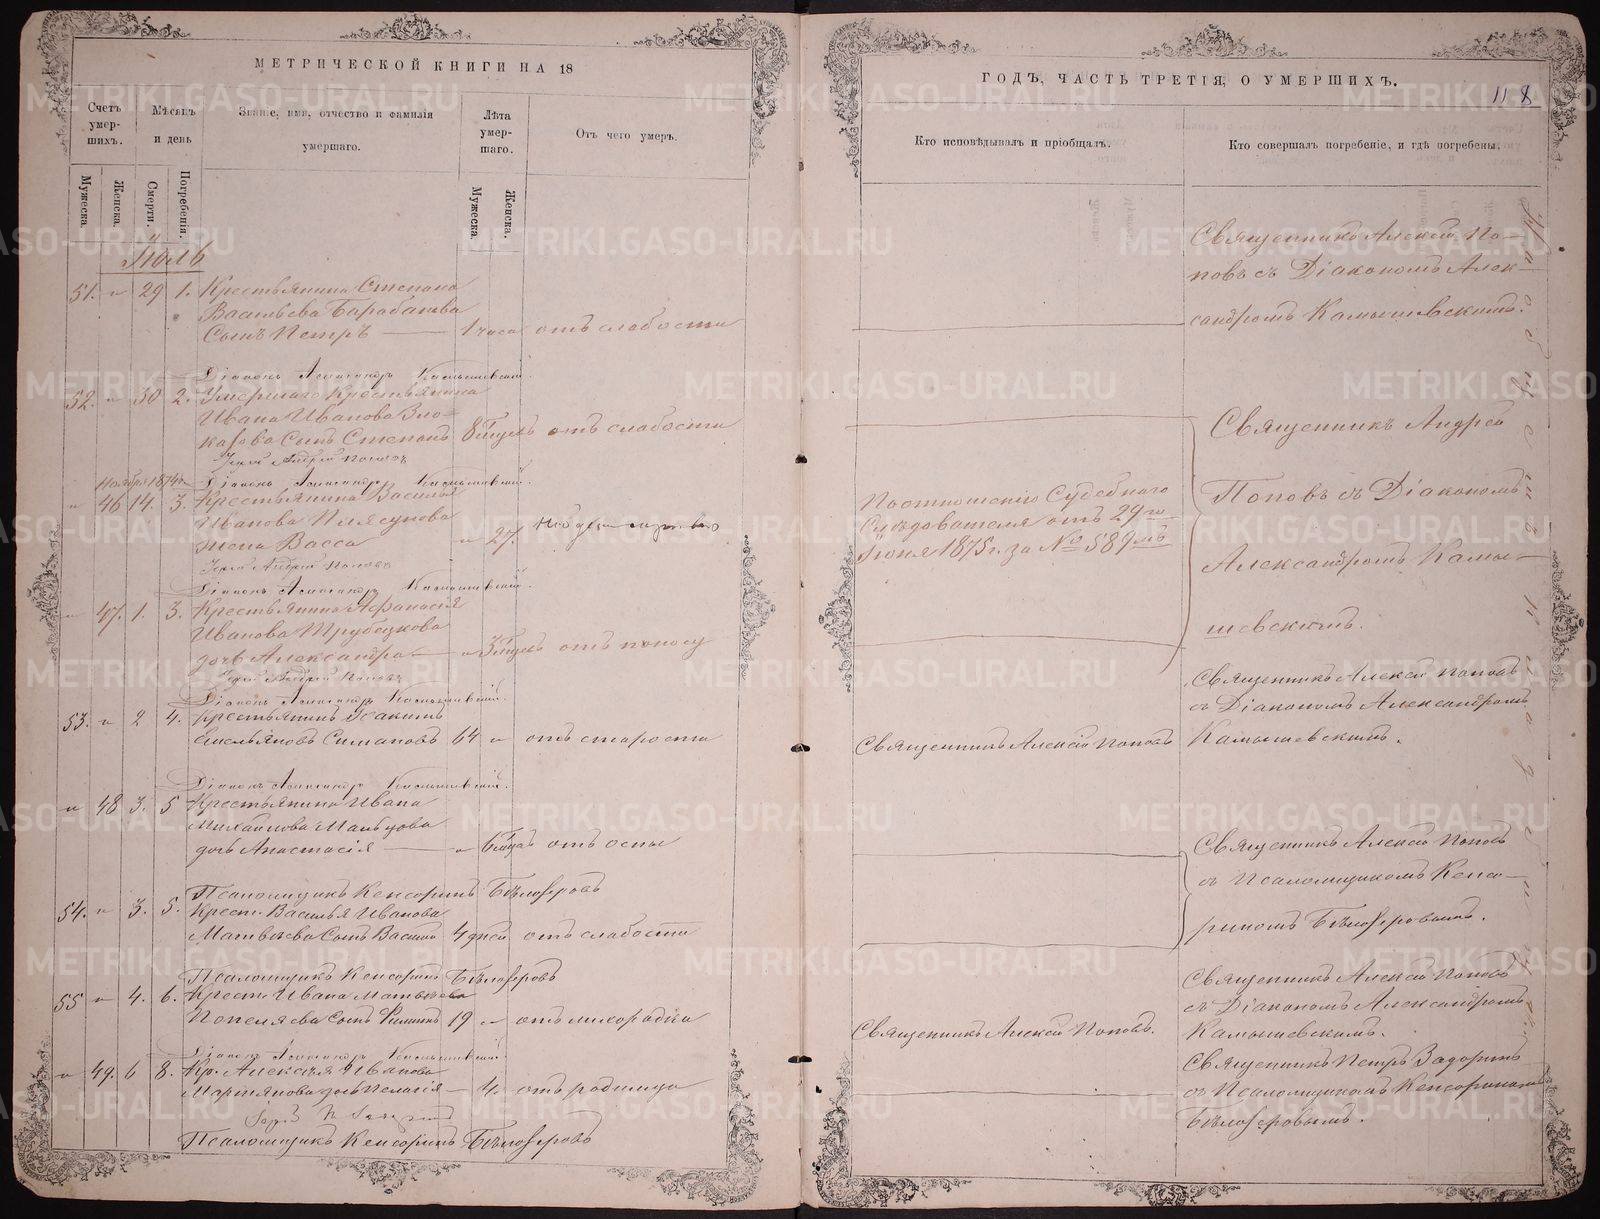 МЕТРИЧЕСКОЙ КНИГИ НА 18
Счетъ умер-шихъ.
Мѣсяцъ и день
Званіе, имя, отчество и фамилія умершаго.
Лѣта умер-шаго.
Отъ чего умеръ.
Мужеска.
Женска.
Смерти.
Погребенія.
Мужеска.
Женска.
Іюль
51. " 29 1. Крестьянина Степана
Васильева Барабанова
Сынъ Петръ 1 часа отъ слабости
Діаконъ Александръ Камышевскій.
52. " 30 2. Умершаго Крестьянина
Ивана Иванова Зло-
казова Сынъ Степанъ отъ слабости
Іерей Андрей Поповъ
Ноября 1874 г.
Діаконъ Александръ Камышевскій.
" 46 14. 3. Крестьянина Василья
Иванова Плясунова
жена Васса " 27.
Іерей Андрей Поповъ
Діаконъ Александръ Камышевскій
" 47. 1. 3. Крестьянина Афанасія
Иванова Трубецкова
дочь Александра отъ поносу
Іерей Андрей Поповъ
Діаконъ Александръ Камышевскій.
53. " 2 4. Крестьянинъ Іоакимъ
Емельяновъ Симановъ 64 " отъ старости
Діаконъ Александръ Камышевскій.
" 48 3. 5 Крестьянина Ивана
Михайлова
дочь Анастасія отъ оспы
Псаломщикъ Кенсоринъ Бѣлозеровъ
54. " 3. 5. Крест. Василья Иванова
Матвѣева Сынъ Василій 4 дней отъ слабости
Псаломщикъ Кенсоринъ Бѣлозеровъ
55 " 4. 6. Крест. Ивана Матвѣева
Попеляева Сынъ Филиппъ 19 " отъ лихорадки
Діаконъ Александръ Камышевскій.
" 49. 6 8. Кр. Алексѣя Иванова
Мартьянова дочь Пелагія 4. отъ родимца
Псаломщикъ Кенсоринъ Бѣлозеровъ
ГОДЪ, ЧАСТЬ ТРЕТІЯ, О УМЕРШИХЪ.
118
Кто исповѣдывалъ и пріобщалъ.
Кто совершалъ погребеніе, и гдѣ погребены.
Священникъ Алексѣй По-
повъ съ Діакономъ Алек-
сандромъ Камышевскимъ.
Священникъ Андрей
Поповъ съ Діакономъ
Александромъ Камы-
шевскимъ.
По отношенію Судебнаго
Слѣдователя отъ 29го
Іюня 1875 г. за № 589мъ
Священникъ Алексѣй Поповъ
съ Діакономъ Александромъ
Камышевскимъ.
Священникъ Алексѣй Поповъ
Священникъ Алексѣй Поповъ
съ Псаломщикомъ Кенсо-
риномъ Бѣлозеровымъ.
Священникъ Алексѣй Поповъ
съ Діакономъ Александромъ
Камышевскимъ.
Священникъ Алексѣй Поповъ.
Священникъ Петръ Задоринъ
съ Псаломщикомъ Кенсориномъ
Бѣлозеровымъ.
METRIKI.GASO-URAL.RU